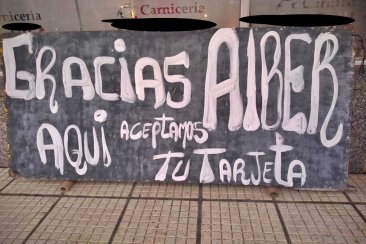 Carnicería
Carnicería
GRACIAS AIBER
AQUI ACEPTAMOS
TU TARJETA